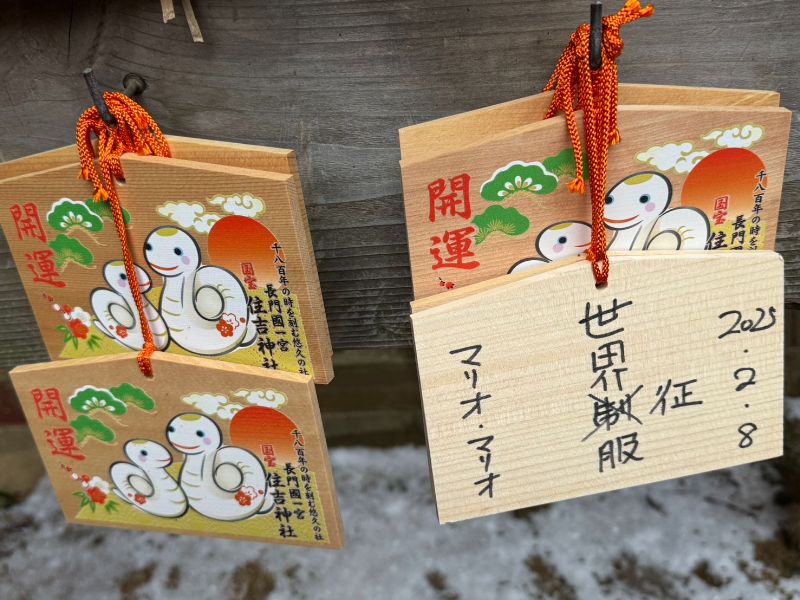 千八百年の時を刻む悠久の社
長門國一宮
国宝
住吉神社
開運
千八百年の時を刻む悠久の社
長門國一宮
国宝
住吉神社
開運
千八百年の時を
長門國
国宝
住
開運
2025.2.8
征
世界制服
マリオ・マリオ